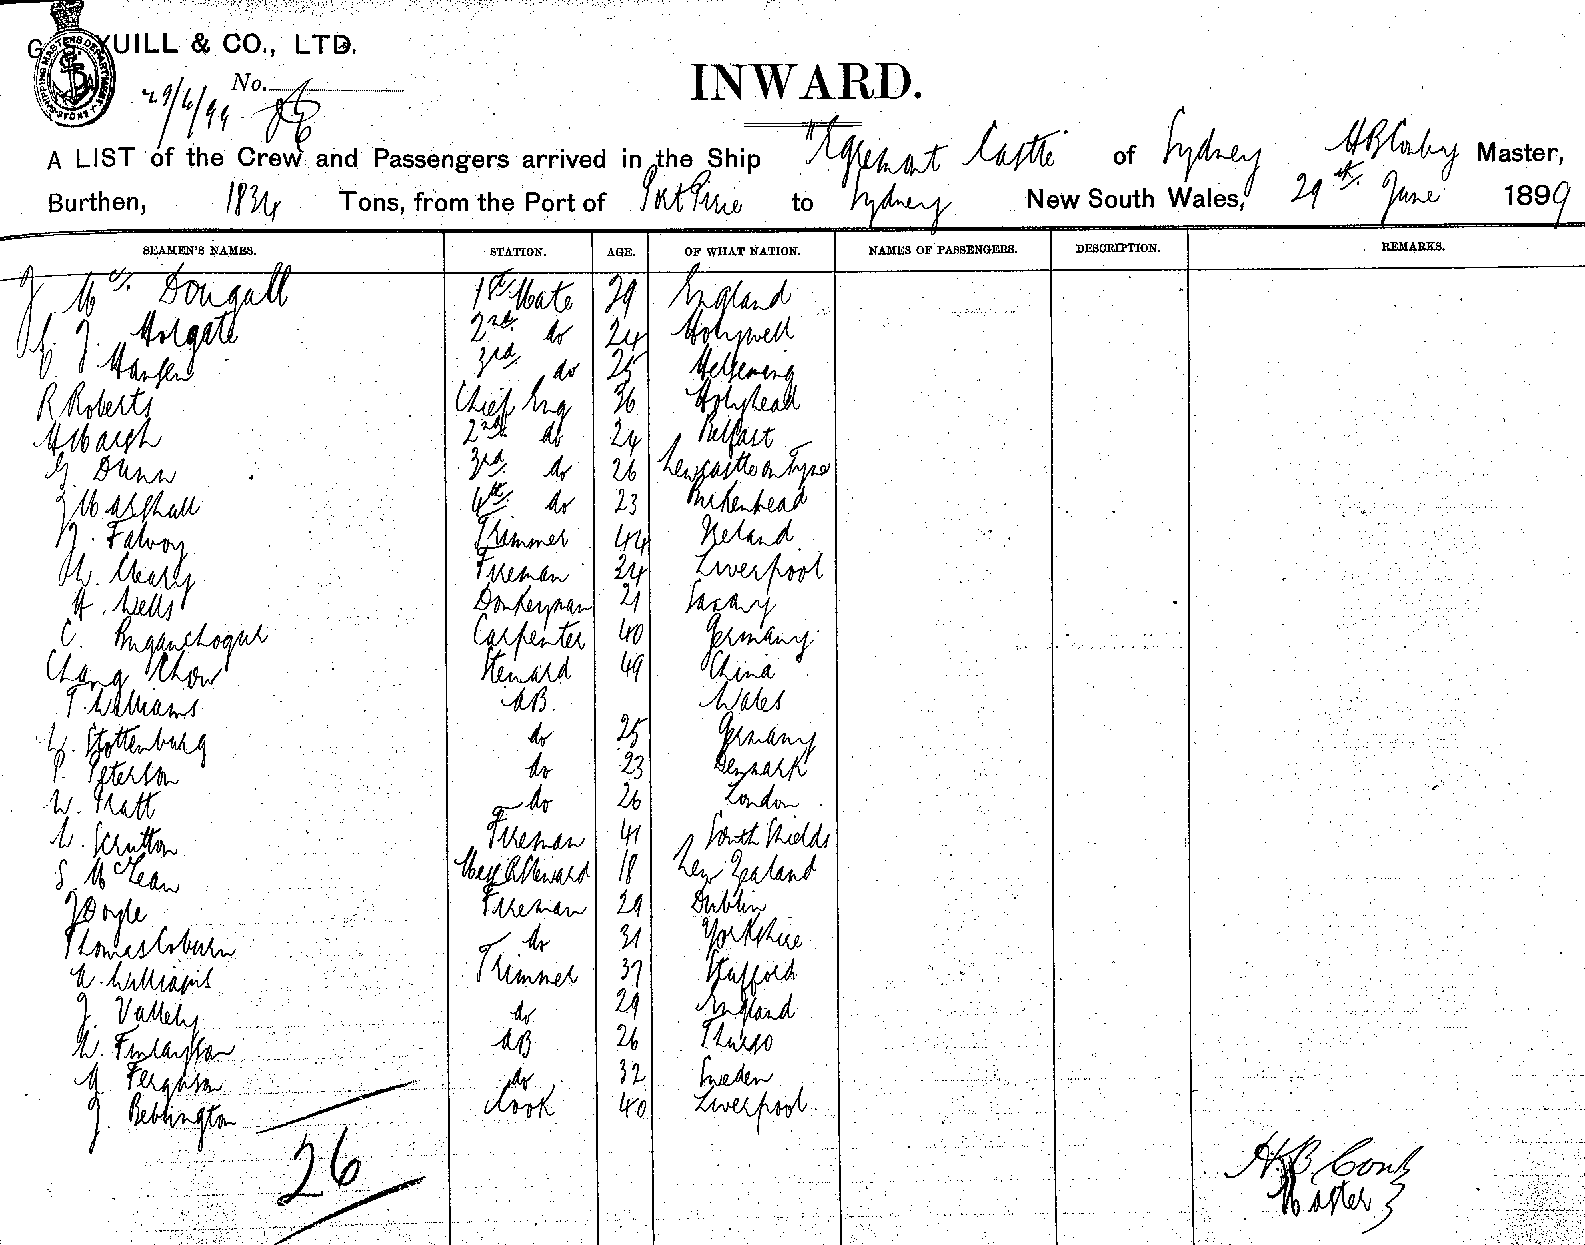 G. S. YUILL & CO., LTD.
No.
29/6/99
INWARD.
A LIST of the Crew and Passengers arrived in the Ship "Egremont Castle of Sydney H B Master,
Burthen, 1834 Tons, from the Port of Port Pirie to Sydney New South Wales, 29th June 1899
SEAMEN'S NAMES. STATION. AGE. OF WHAT NATION. NAMES OF PASSENGERS. DESCRIPTION. REMARKS.
J Mc Dougall 1st Mate 29 England
J. Holgate 2nd do 24 Holywell
Hansen 3rd do 25
R Roberts Chief Eng 36 Holyhead
2nd do 24 Belfast
G. Dunn 3rd do 26 Newcastle on Tyne
J Marshall 4th do 23 Birkenhead
Falvoy Trimmer 44 Ireland
Fireman 24 Liverpool
H. Wells Donkeyman 21
C. Carpenter 40 Germany
Chang Chow Steward 49 China
T. Williams AB. Wales
W. Stottenburg do 25 Germany
P. Peterson do 23 Denmark
W. Pratt do 26 London
W. Scrutton Fireman 41 South Shields
S McLean Mess R Steward 18 New Zealand
J Doyle Fireman 29 Dublin
Thomas Coburn do 31 Yorkshire
Williams Trimmer 37 Stafford
J. Vallely do 29 England
W. Finlayson AB 26 Thurso
Ferguson do 32 Sweden
J. Bebbington Cook 40 Liverpool
26
H B
Master